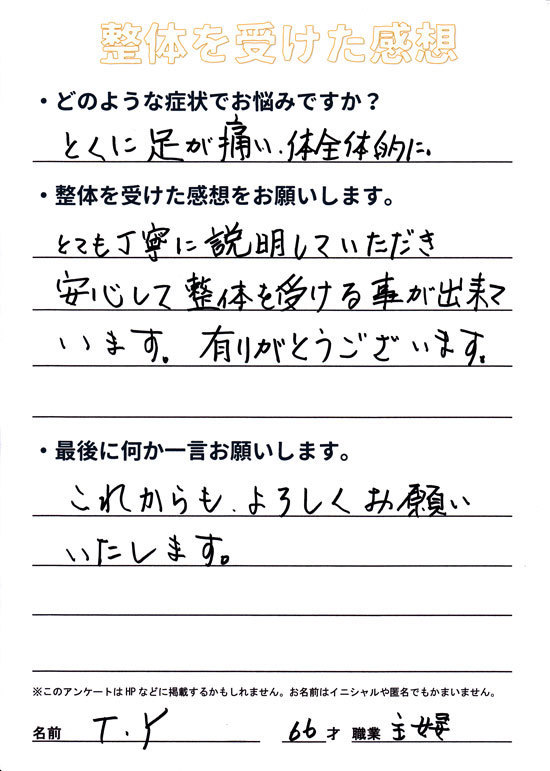 整体を受けた感想
・どのような症状でお悩みですか？
とくに足が痛い、体全体的に。
・整体を受けた感想をお願いします。
とても丁寧に説明していただき
安心して整体を受ける事が出来て
います。有りがとうございます。
・最後に何か一言お願いします。
これからも、よろしくお願い
いたします。
※このアンケートはHPなどに掲載するかもしれません。お名前はイニシャルや匿名でもかまいません。
名前 T.Y 66才 職業 主婦